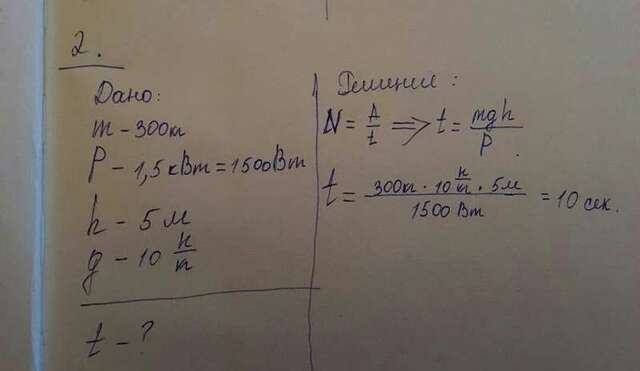 2.
Дано:
m - 300кг
P - 1,5 кВт = 1500Вт
h - 5 м
g - 10 н/кг
t - ?
Решение:
N = A/t => t = mgh/P
t = 300кг · 10 н/кг · 5м / 1500 Вт = 10 сек.